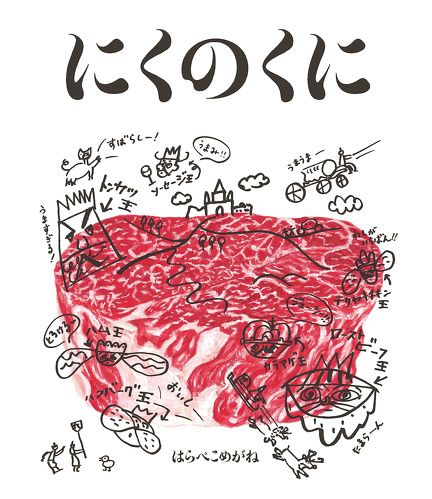 にくのくに
すばらしー！
うまみ！！
ソーセージ王
うまうま
トンカツ王
うますぎる！
テリヤキチキン王
とろける〜
ハム王
カラアゲ王
ローストビーフ王
ハンバーグ王
おいし
たまらーん
はらぺこめがね